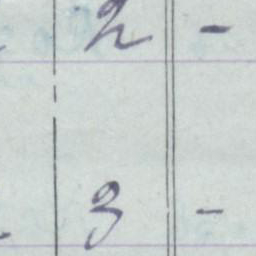 2 -
3 -